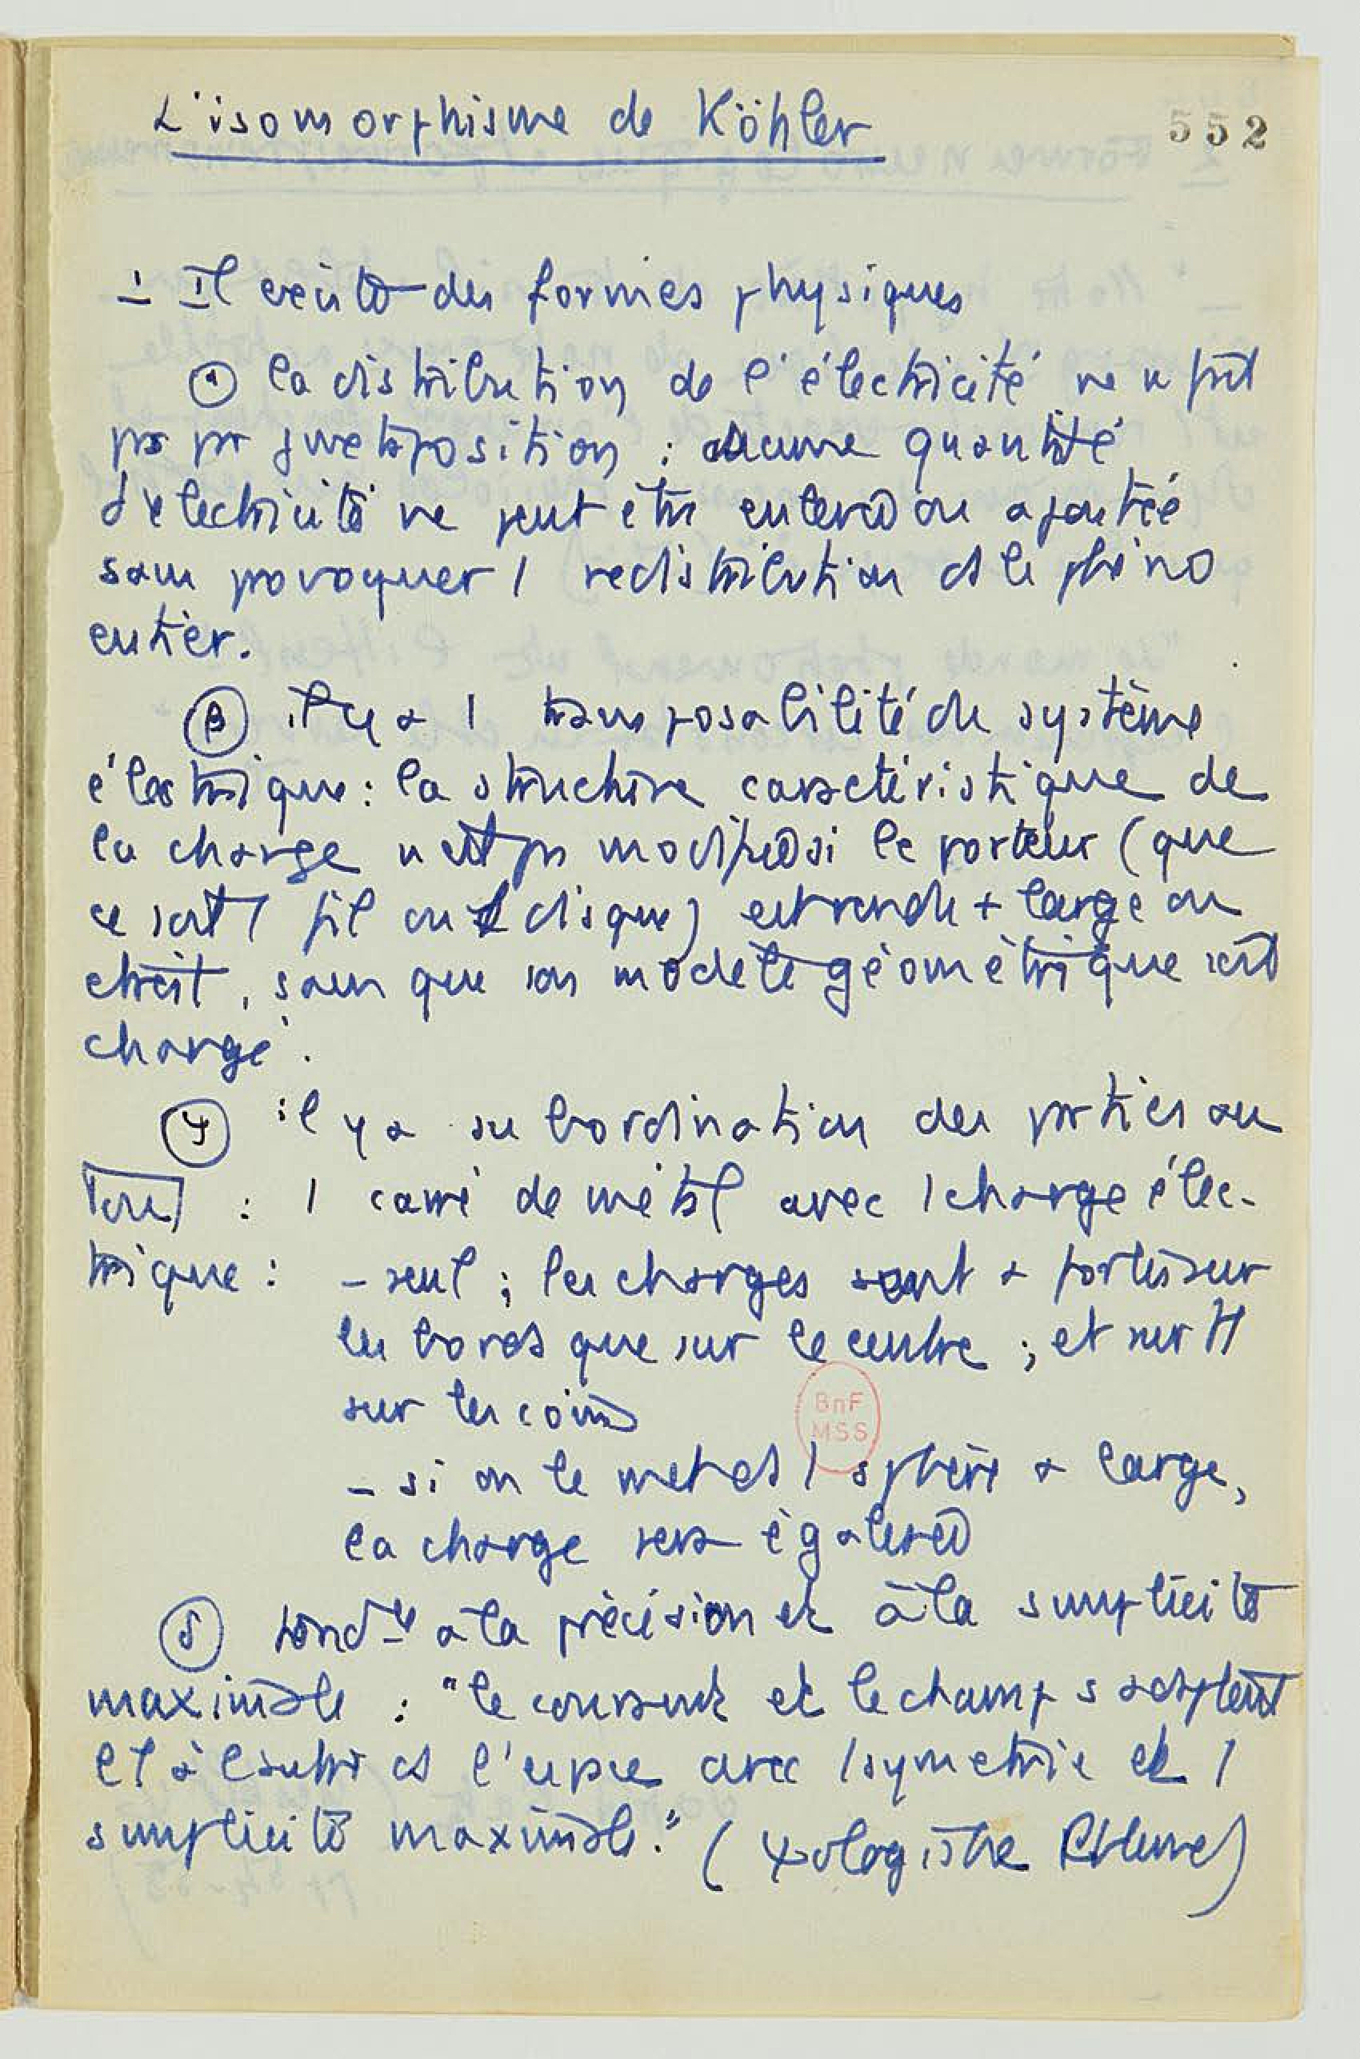 L'isomorphisme de Köhler
552
I Il existe des formes physiques
α la distribution de l'électricité ne se fait
pas par juxtaposition : aucune quantité
d'électricité ne peut être enlevée ou ajoutée
sans provoquer 1 redistribution ds le phéno
entier.
β il y a 1 transposabilité du système
électrique : la structure caractéristique de
la charge n'est pas modifiée si le porteur (que
ce soit 1 fil ou 1 disque) est rendu + large ou
étroit, sans que son modèle géométrique soit
changé.
γ il y a subordination des parties au
tout : 1 carré de métal avec 1 charge élec-
trique : - seul ; les charges sont + fortes sur
les bords que sur le centre ; et surtt
sur les coins
- si on le met ds 1 sphère + large,
la charge sera égalisée
δ tend à la précision et à la simplicité
maximale : "le courant et le champ s'adaptent
l'1 à l'autre ds l'espace avec 1 symétrie et 1
simplicité maximale." (
BnF
MSS